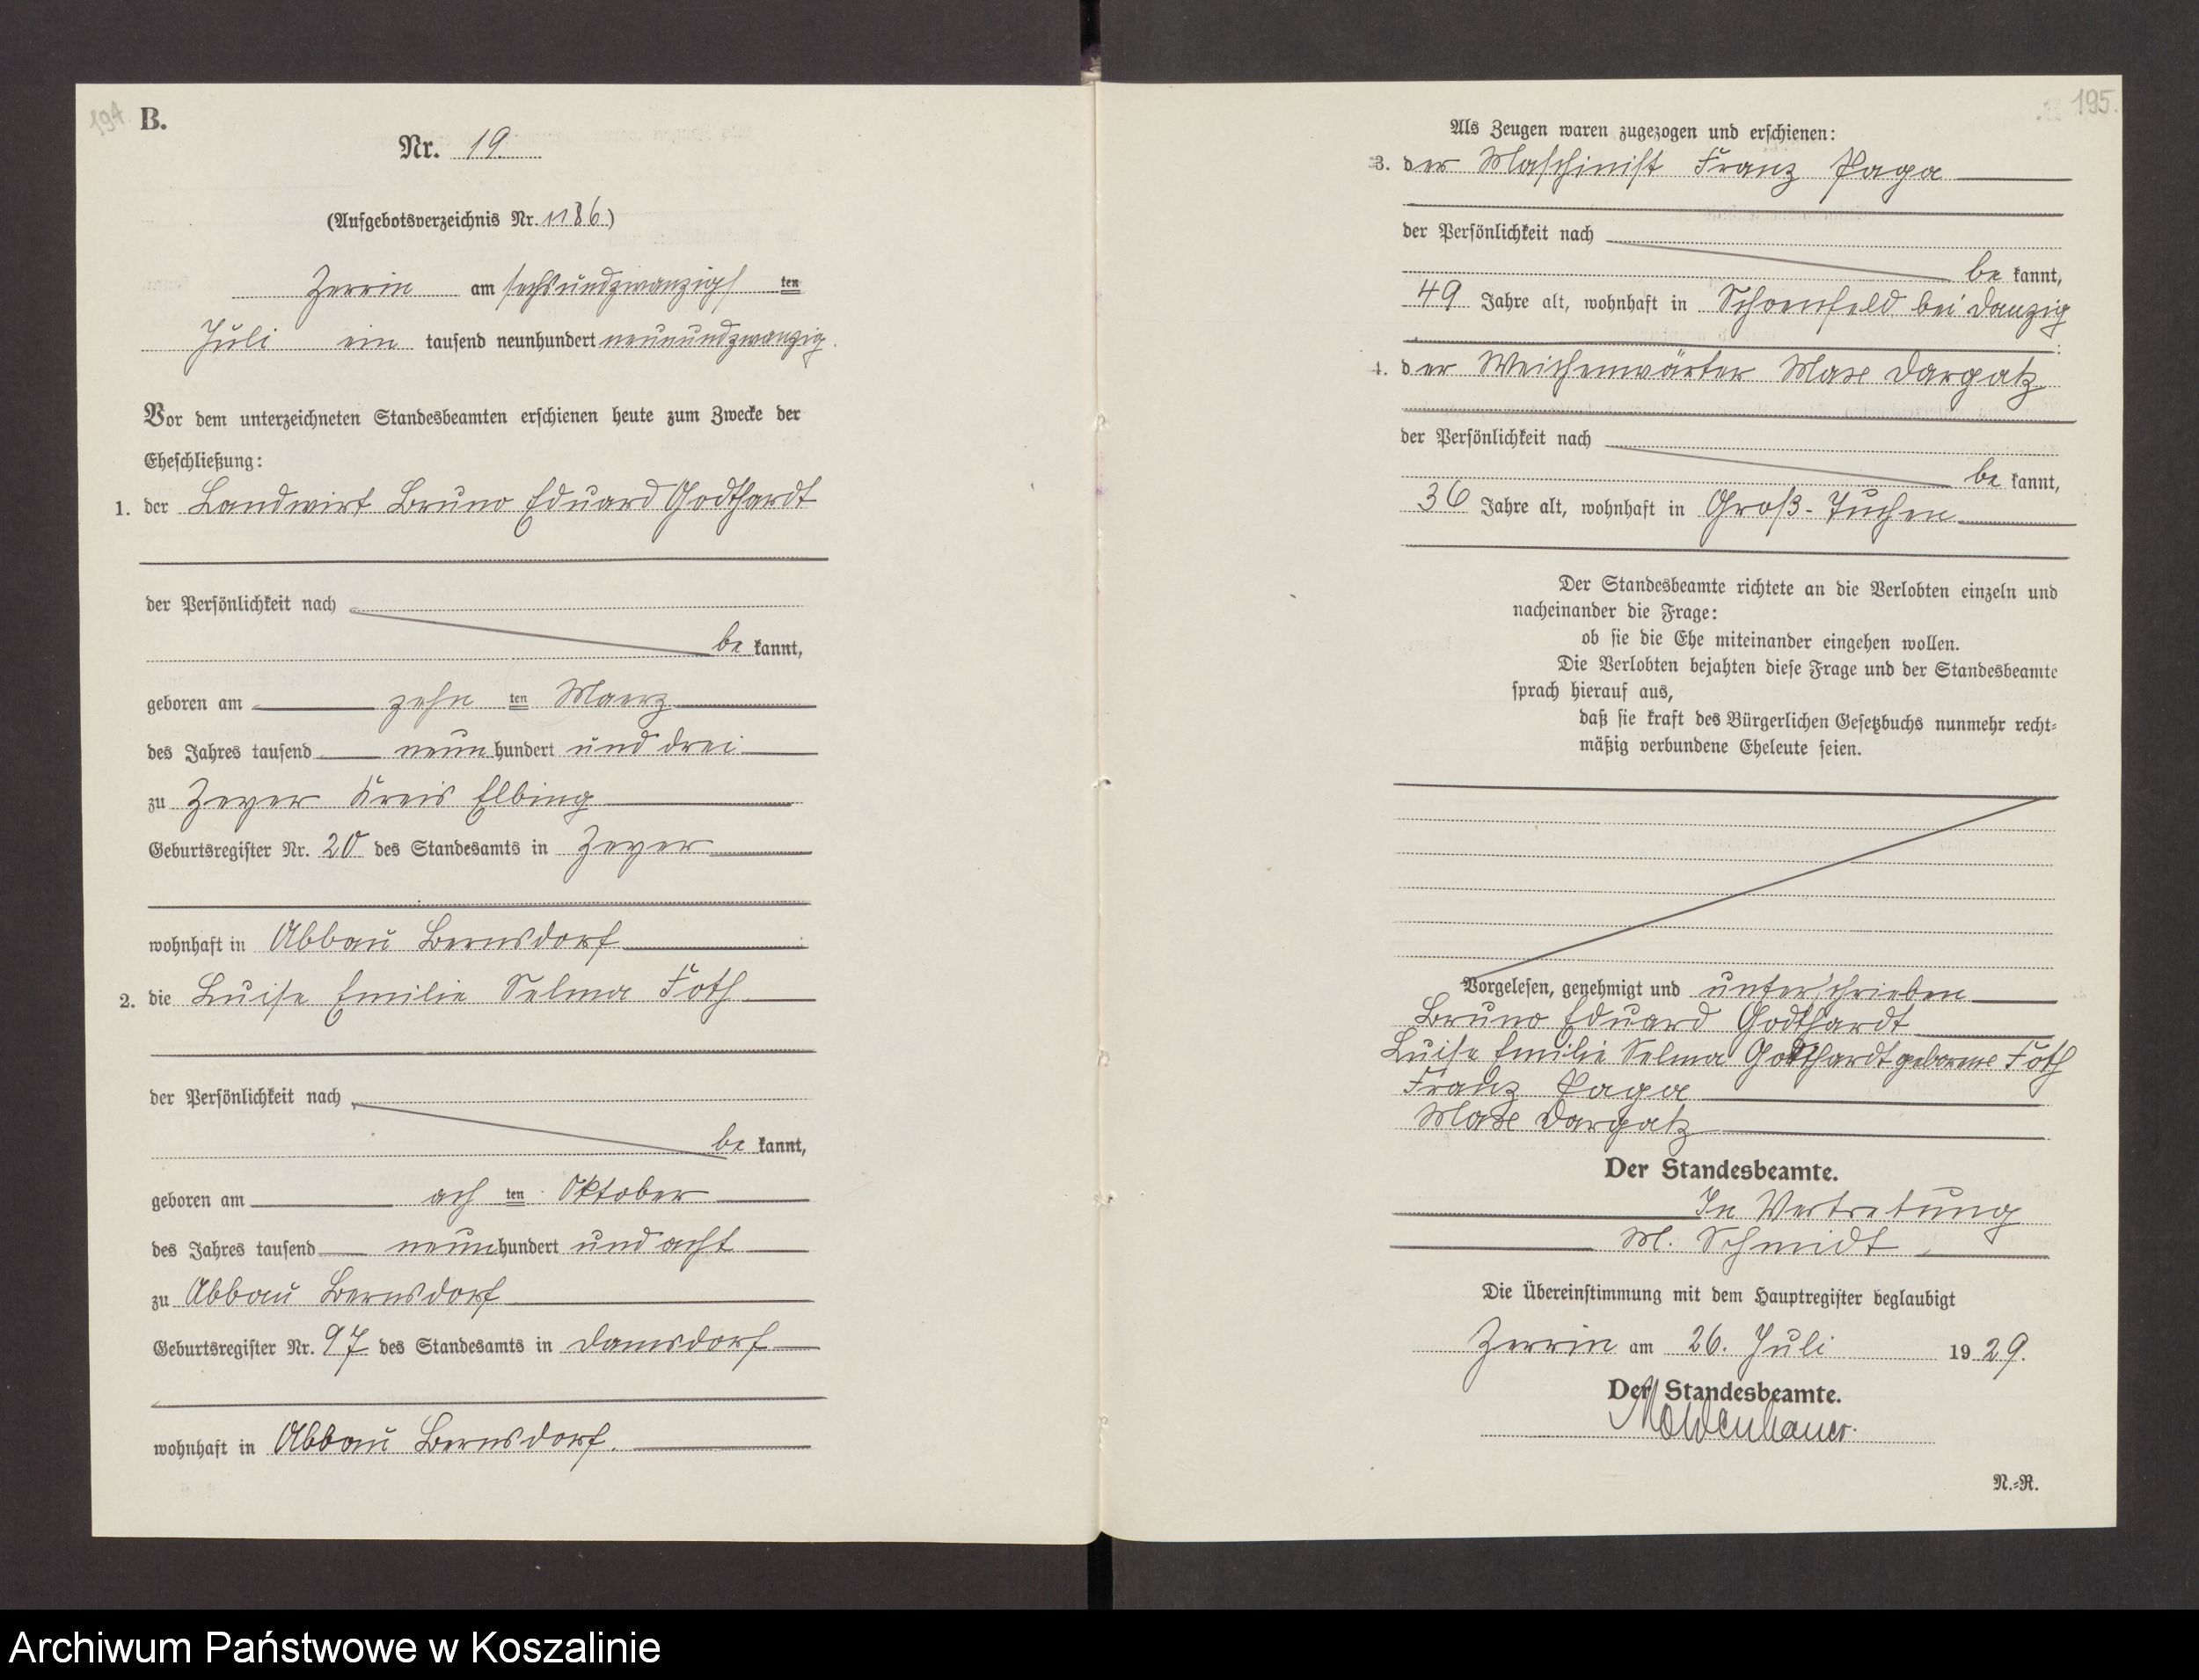 194.
B.
Nr. 19.
(Aufgebotsverzeichnis Nr. 1186.)
Zerrin am sechsundzwanzigsten
Juli ein tausend neunhundert neunundzwanzig.
Vor dem unterzeichneten Standesbeamten erschienen heute zum Zwecke der
Eheschließung:
1. der Landwirt Bruno Eduard Godthardt
der Persönlichkeit nach
be kannt,
geboren am zehn ten Maerz
des Jahres tausend neun hundert und drei
zu Zeyer Kreis Elbing
Geburtsregister Nr. 20 des Standesamts in Zeyer
wohnhaft in Abbau Bernsdorf
2. die Luise Emilie Selma Foth
der Persönlichkeit nach
be kannt,
geboren am ach ten Oktober
des Jahres tausend neun hundert und acht
zu Abbau Bernsdorf
Geburtsregister Nr. 97 des Standesamts in Damsdorf
wohnhaft in Abbau Bernsdorf.
195.
Als Zeugen waren zugezogen und erschienen:
3. der Maschinist Franz Paga
der Persönlichkeit nach
be kannt,
49 Jahre alt, wohnhaft in Schoenfeld bei Danzig
4. der Weichenwärter Max Dargatz
der Persönlichkeit nach
be kannt,
36 Jahre alt, wohnhaft in Groß-Tuchen
Der Standesbeamte richtete an die Verlobten einzeln und
nacheinander die Frage:
ob sie die Ehe miteinander eingehen wollen.
Die Verlobten bejahten diese Frage und der Standesbeamte
sprach hierauf aus,
daß sie kraft des Bürgerlichen Gesetzbuchs nunmehr recht-
mäßig verbundene Eheleute seien.
Vorgelesen, genehmigt und unterschrieben
Bruno Eduard Godthardt
Luise Emilie Selma Godthardt geborene Foth
Franz Paga
Max Dargatz
Der Standesbeamte.
In Vertretung
M. Schmidt
Die Übereinstimmung mit dem Hauptregister beglaubigt
Zerrin am 26. Juli 1929.
Der Standesbeamte.
N.-R.
Archiwum Państwowe w Koszalinie